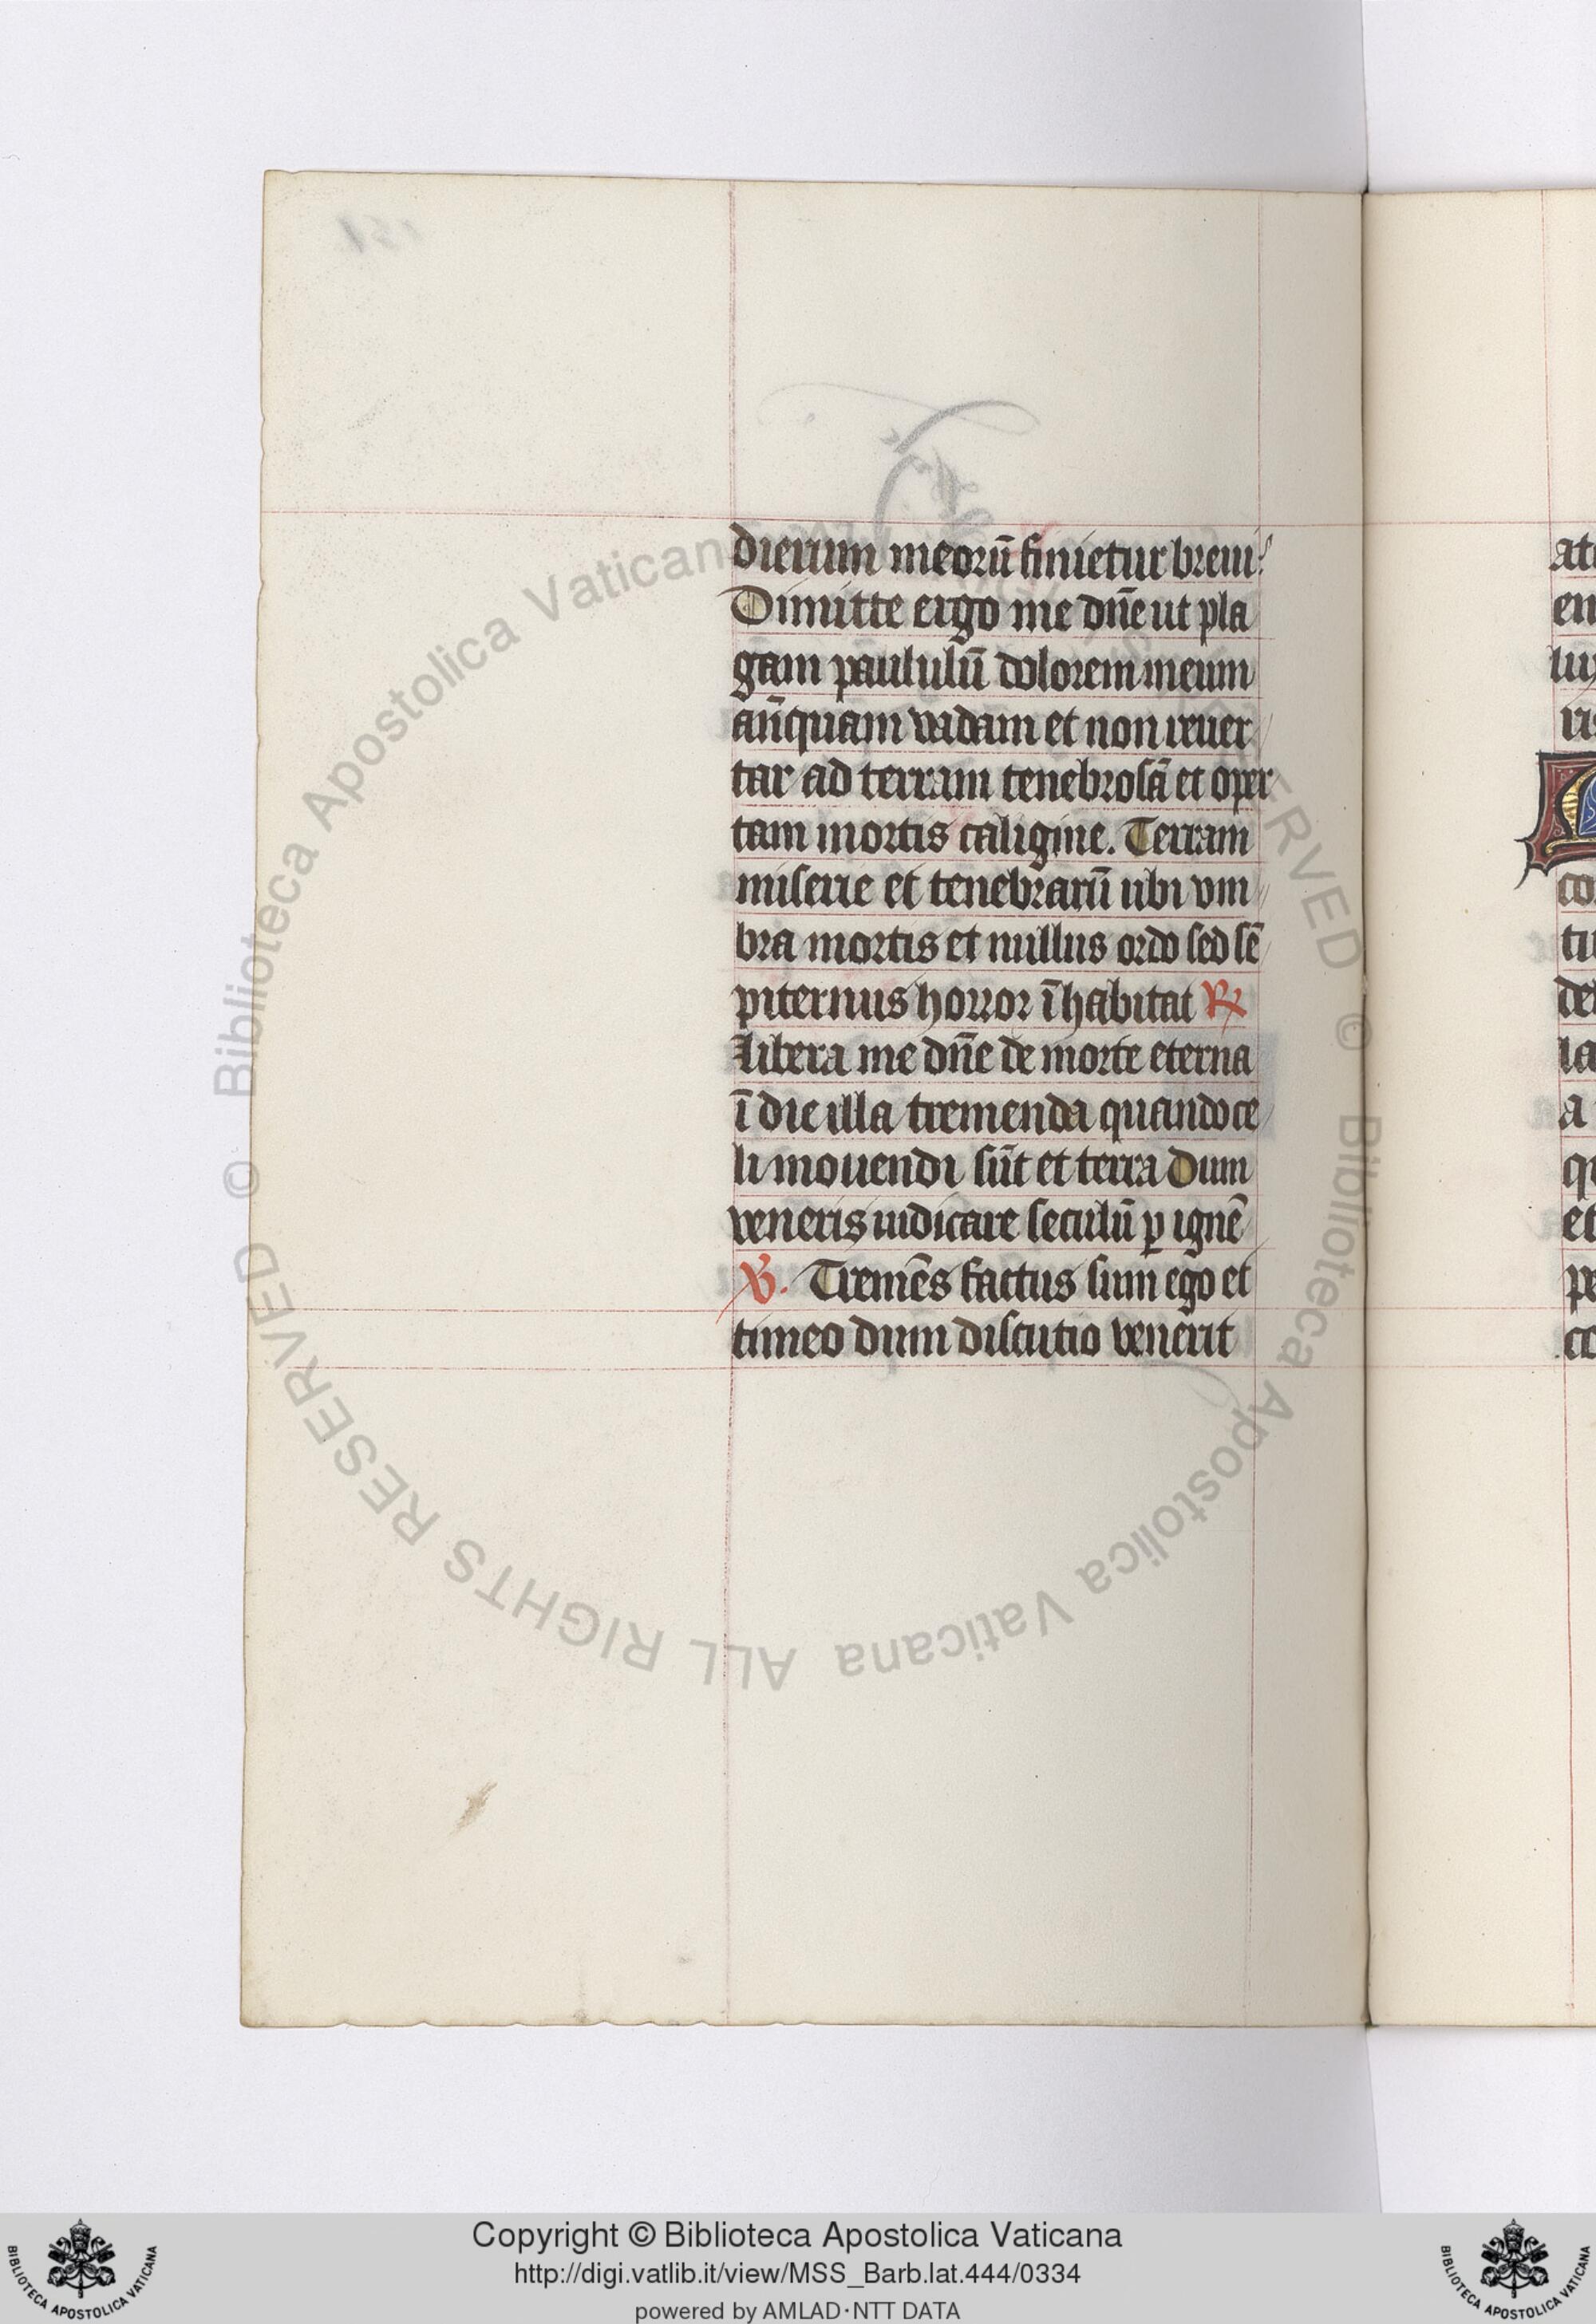 dierum meorū finietur breui?
Dimitte ergo me dn̄e ut pla
gam paululū dolorem meum
an̄quam vadam et non reuer
tar ad terram tenebrosā et oper
tam mortis caligine. Terram
miserie et tenebrarū ubi vm
bra mortis et nullus ordo sed sē
piternus horror īhabitat ℟
Libera me dn̄e de morte eterna
ī die illa tremenda quando ce
li mouendi sūt et terra Dum
veneris iudicare seculū ꝑ ignē
℣. Tremēs factus sum ego et
timeo dum discutio venerit
co
ti
de
la
a
et
© Biblioteca Apostolica Vaticana ALL RIGHTS RESERVED © Biblioteca Apostolica Vaticana ALL RIGHTS RESERVED
Copyright © Biblioteca Apostolica Vaticana
http://digi.vatlib.it/view/MSS_Barb.lat.444/0334
powered by AMLAD·NTT DATA
BIBLIOTECA APOSTOLICA VATICANA
BIBLIOTECA APOSTOLICA VATICANA